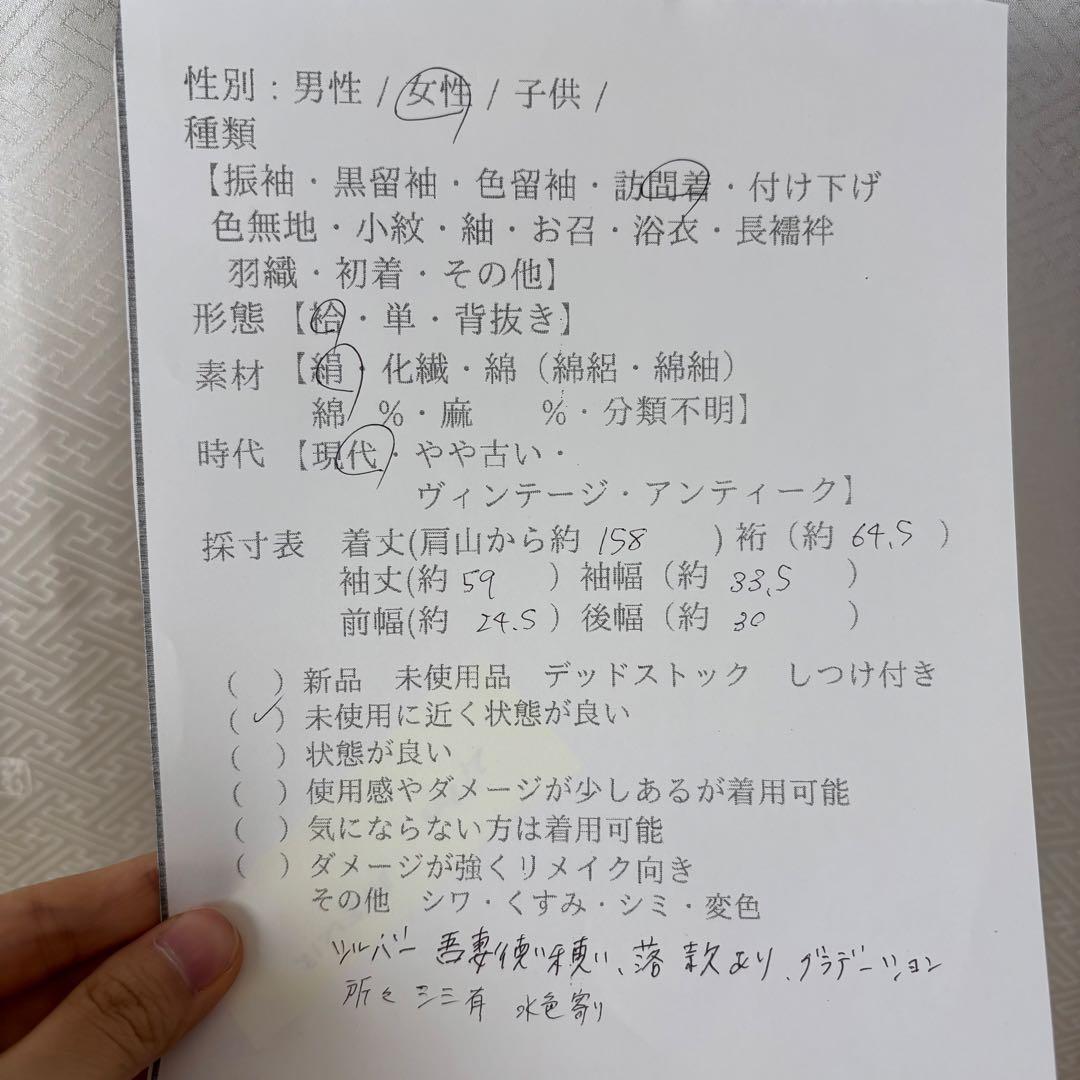 性別：男性 / 女性 / 子供 /
種類
【振袖・黒留袖・色留袖・訪問着・付け下げ
色無地・小紋・紬・お召・浴衣・長襦袢
羽織・初着・その他】
形態 【袷・単・背抜き】
素材 【絹・化繊・綿（綿絽・綿紬）
綿 %・麻 %・分類不明】
時代 【現代・やや古い・
ヴィンテージ・アンティーク】
採寸表 着丈(肩山から約 158 ) 裄（約 64.5 ）
袖丈(約 59 ）袖幅（約 33.5 ）
前幅(約 24.5 ）後幅（約 30 ）
( ) 新品 未使用品 デッドストック しつけ付き
(✓) 未使用に近く状態が良い
( ) 状態が良い
( ) 使用感やダメージが少しあるが着用可能
( ) 気にならない方は着用可能
( ) ダメージが強くリメイク向き
その他 シワ・くすみ・シミ・変色
シルバー 吾妻 、落款あり、グラデーション
所々シミ有 水色寄り